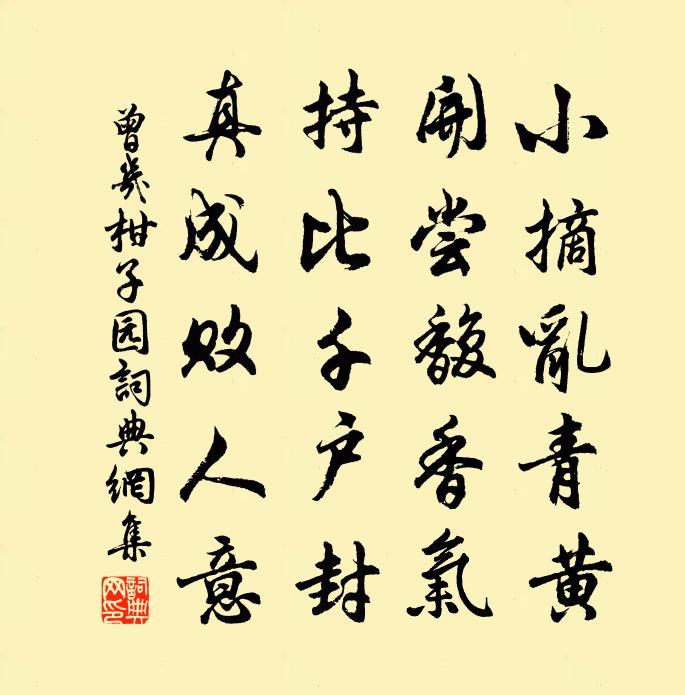 小摘亂青黃
開尝馥香氣
持比千户封
真成败人意
曾幾柑子园詞典網集
詞典网印